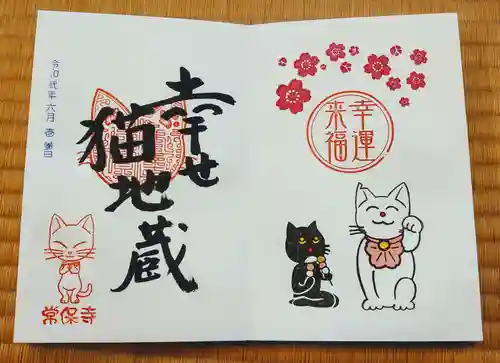 令和弐年六月壱日
幸せ
猫地蔵
常保寺
幸運
来福